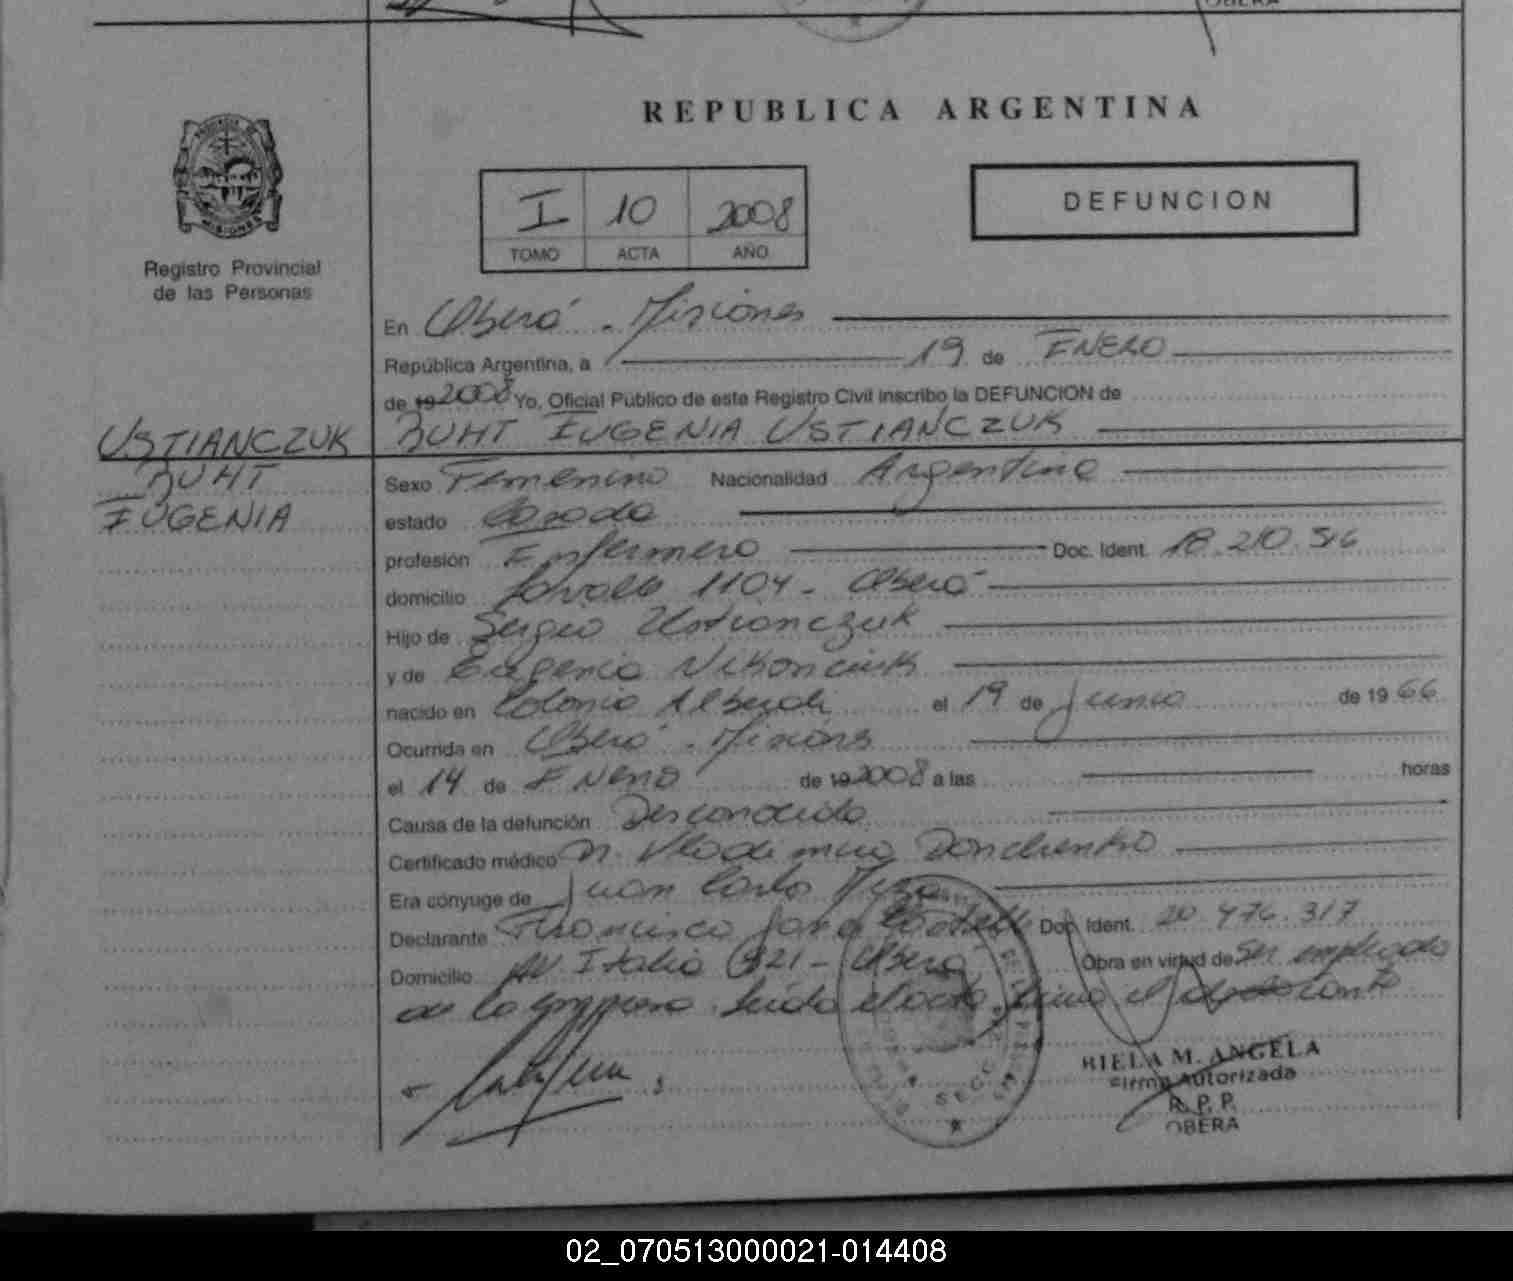 OBERA
REPUBLICA ARGENTINA
I 10 2008
TOMO ACTA AÑO
DEFUNCION
MISIONES
Registro Provincial
de las Personas
En Oberá. Misiones
República Argentina, a 19 de ENERO
de 19 2008 Yo, Oficial Público de este Registro Civil inscribo la DEFUNCION de
USTIANCZUK
RUHT EUGENIA USTIANCZUK
RUHT
EUGENIA
Sexo Femenino Nacionalidad Argentina
estado Casada
profesión Enfermera Doc. Ident. 18.210.516
domicilio 1104 - Oberá
Hijo de Sergio Ustianczuk
y de Eugenia
nacido en Colonia Alberdi el 19 de Junio de 1966
Ocurrida en Oberá. Misiones
el 14 de Enero de 19 2008 a las horas
Causa de la defunción Desconocida
Certificado médico Donchenko
Era cónyuge de Juan Carlos
Declarante Francisco Doc. Ident. 20.476.317
Domicilio AV Italia 321 - Oberá Obra en virtud de Ser empleado
de la empresa. Leída el acta, firma el declarante
RIELA M. ANGELA
Firma Autorizada
R. P. P.
OBERA
02_070513000021-014408